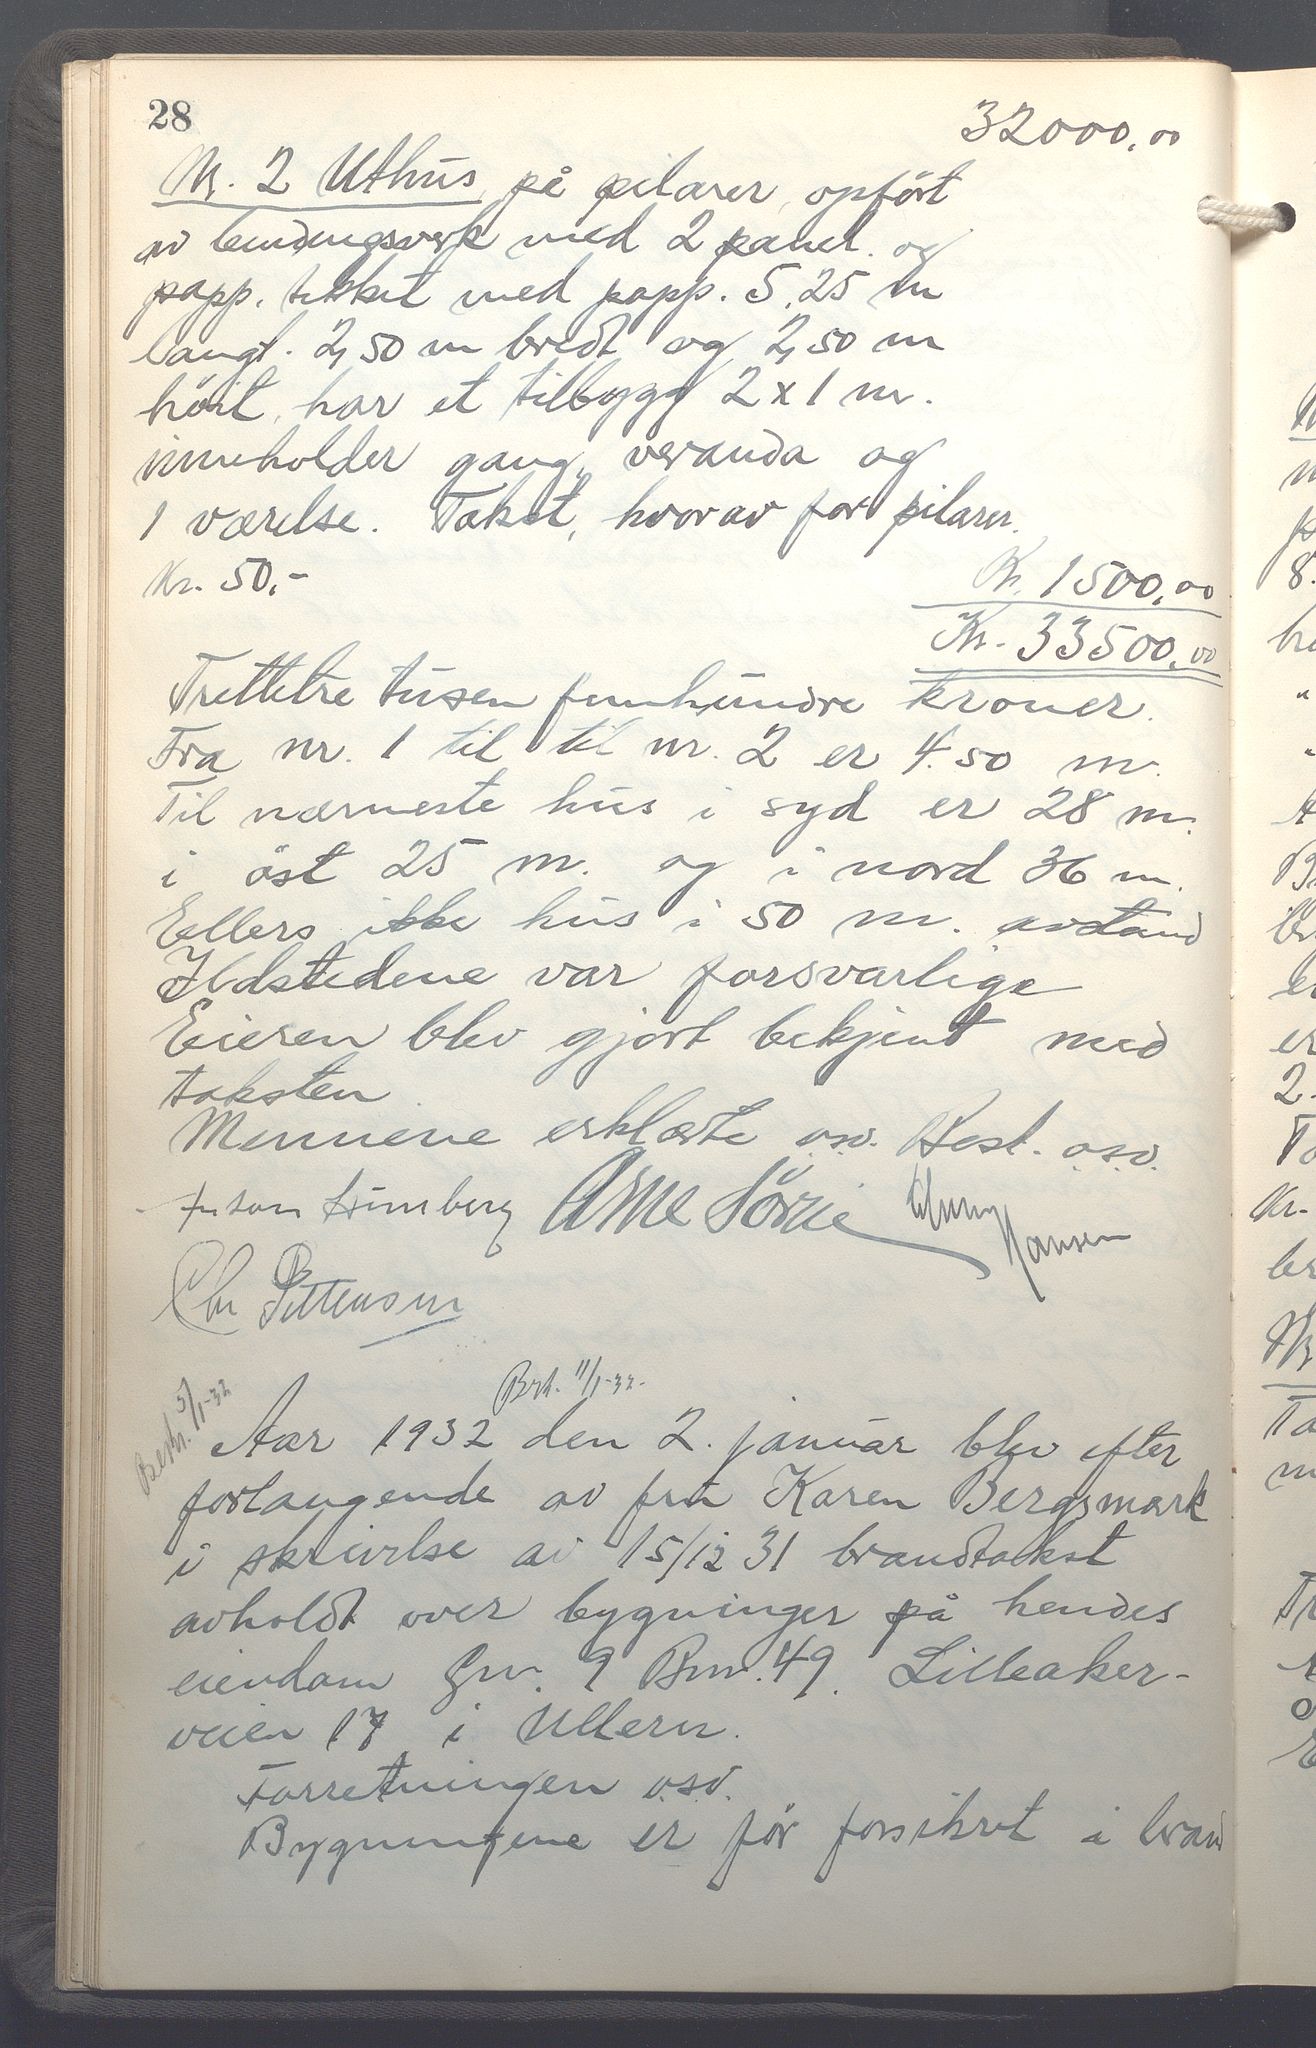 28
32000,00
Nr. 2 Uthus på pilarer, opført
av bindingsverk med 2 panel. og
papp. tekket med papp. 5,25 m
langt. 2,50 m bredt og 2,50 m
höit, har et tilbygg 2 x 1 m.
inneholder gang, veranda og
1 værelse. Takst, hvorav for pilarer.
Kr. 50,-
Kr. 1500,00
Kr. 33500,00
Trettitre tusen femhundre kroner.
Fra nr. 1 til til nr. 2 er 4.50 m.
Til nærmeste hus i syd er 28 m.
i öst 25 m. og i nord 36 m.
Ellers ikke hus i 50 m. avstand
Ildstedene var forsvarlige
Eieren blev gjort bekjent med
taksten
Mennene erklærte osv. Best. osv.
Arne Hansen
Chr Pettersen
Brt. 11/1-32.
5/1-32
Aar 1932 den 2. januar blev efter
forlangende av fru Karen Bergsmark
i skrivelse av 15/12 31 brandtakst
avholdt over bygninger på hendes
eiendom Gnr. 9 Bnr. 49. Lilleaker-
veien 17 i Ullern.
Forretningen osv.
Bygningene er før forsikret i brand